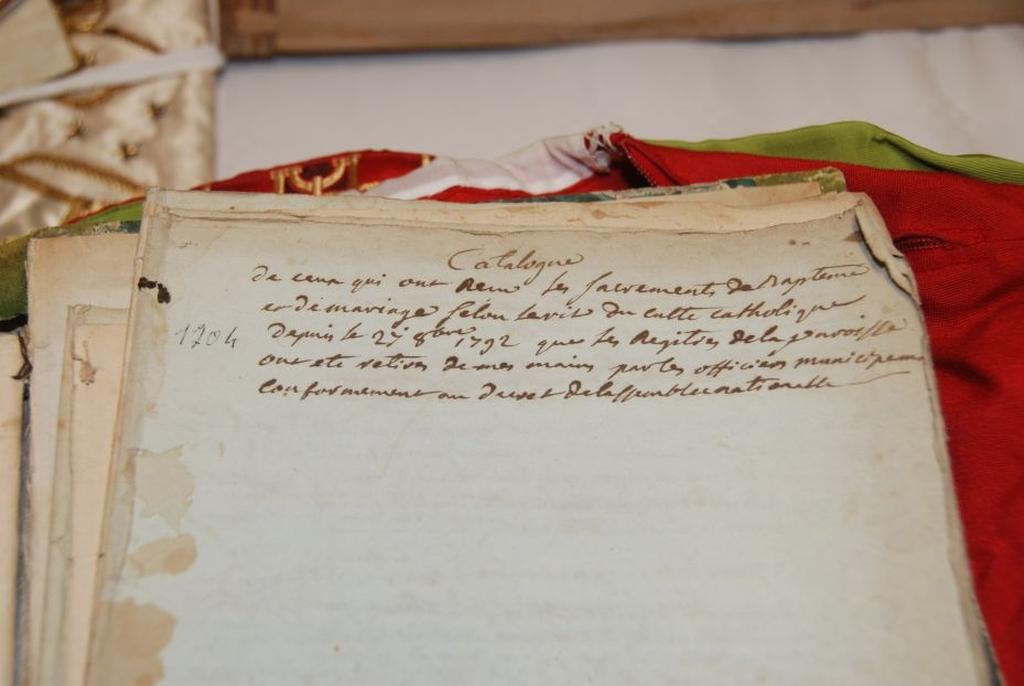 Catalogue
de ceux qui ont Recu les sacrements de Bapteme
et de mariage selon le rit du culte catholique
1704
Depuis le 27 8bre 1792 que les Registres de la paroisse
ont ete retires de mes mains par les officiers municipeaux
conformement au Decret de l'assemblee nationalle